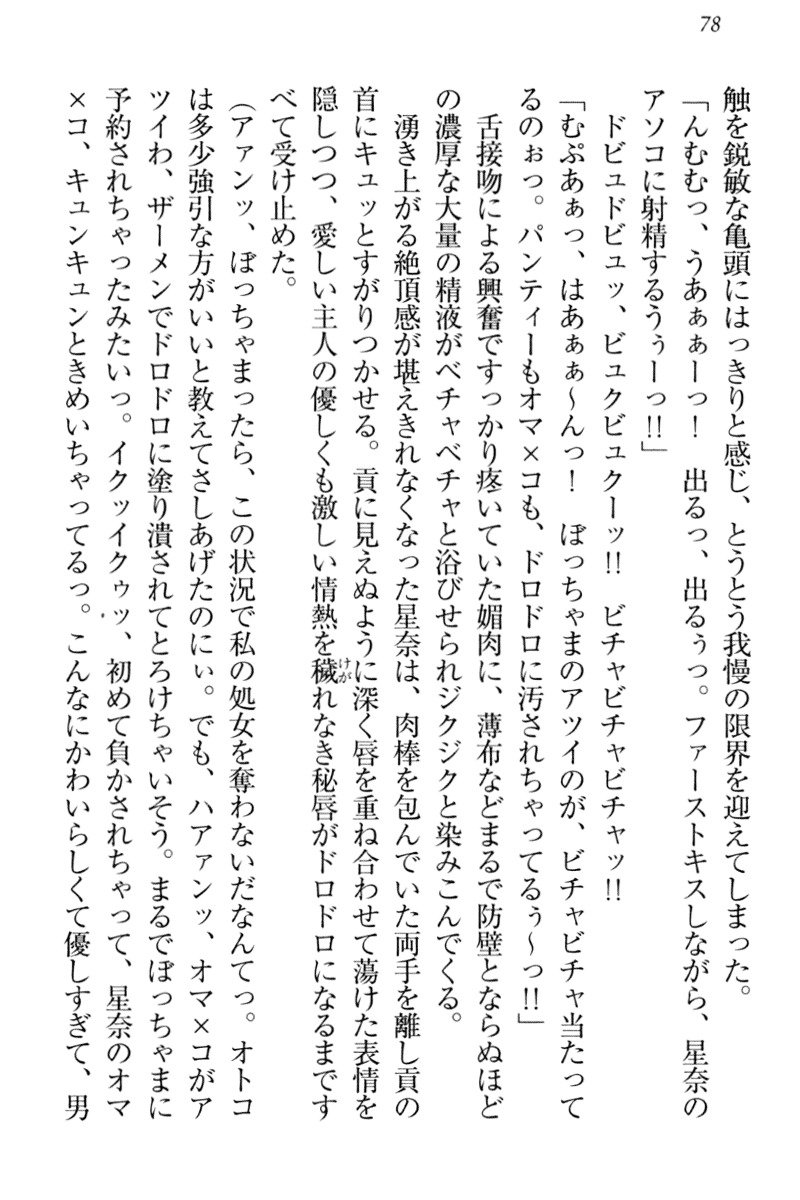 78
触を鋭敏な亀頭にはっきりと感じ、とうとう我慢の限界を迎えてしまった。
「んむむっ、うあぁぁーっ！　出るっ、出るぅっ。ファーストキスしながら、星奈の
アソコに射精するうぅーっ!!」
ドビュドビュッ、ビュクビュクーッ!!　ビチャビチャビチャッ!!
「むぷあぁっ、はあぁぁ～んっ！　ぼっちゃまのアツイのが、ビチャビチャ当たって
るのぉっ。パンティーもオマ×コも、ドロドロに汚されちゃってるぅ～っ!!」
舌接吻による興奮ですっかり疼いていた媚肉に、薄布などまるで防壁とならぬほど
の濃厚な大量の精液がベチャベチャと浴びせられジクジクと染みこんでくる。
湧き上がる絶頂感が堪えきれなくなった星奈は、肉棒を包んでいた両手を離し貢の
首にキュッとすがりつかせる。貢に見えぬように深く唇を重ね合わせて蕩けた表情を
隠しつつ、愛しい主人の優しくも激しい情熱を穢れなき秘唇がドロドロになるまです
べて受け止めた。
（アァンッ、ぼっちゃまったら、この状況で私の処女を奪わないだなんてっ。オトコ
は多少強引な方がいいと教えてさしあげたのにぃ。でも、ハアァンッ、オマ×コがア
ツイわ、ザーメンでドロドロに塗り潰されてとろけちゃいそう。まるでぼっちゃまに
予約されちゃったみたいっ。イクッイクゥッ、初めて負かされちゃって、星奈のオマ
×コ、キュンキュンときめいちゃってるっ。こんなにかわいらしくて優しすぎて、男